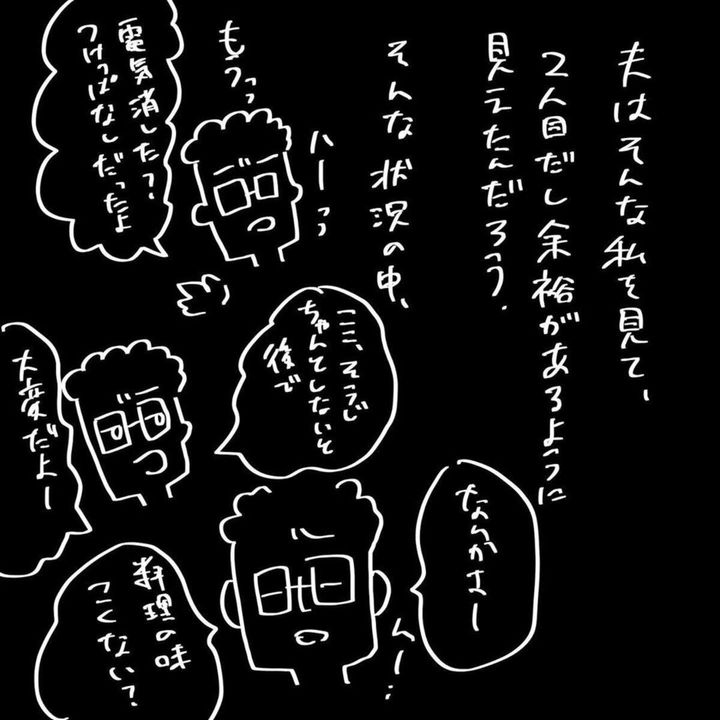 夫はそんな私を見て、
2人目だし余裕があるように
見えたんだろう.
そんな状況の中、
もうっっ
ハーっっ
電気消した?
つけっぱなしだったよ
ここ、そうじ
ちゃんとしないと
後で
大変だよー
なんかさー
ムー..
料理の味
こくない?